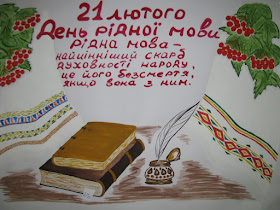 21 лютого
День рідної мови
Рідна мова –
найцінніший скарб
духовності народу,
це його безсмертя,
якщо вона з ним.